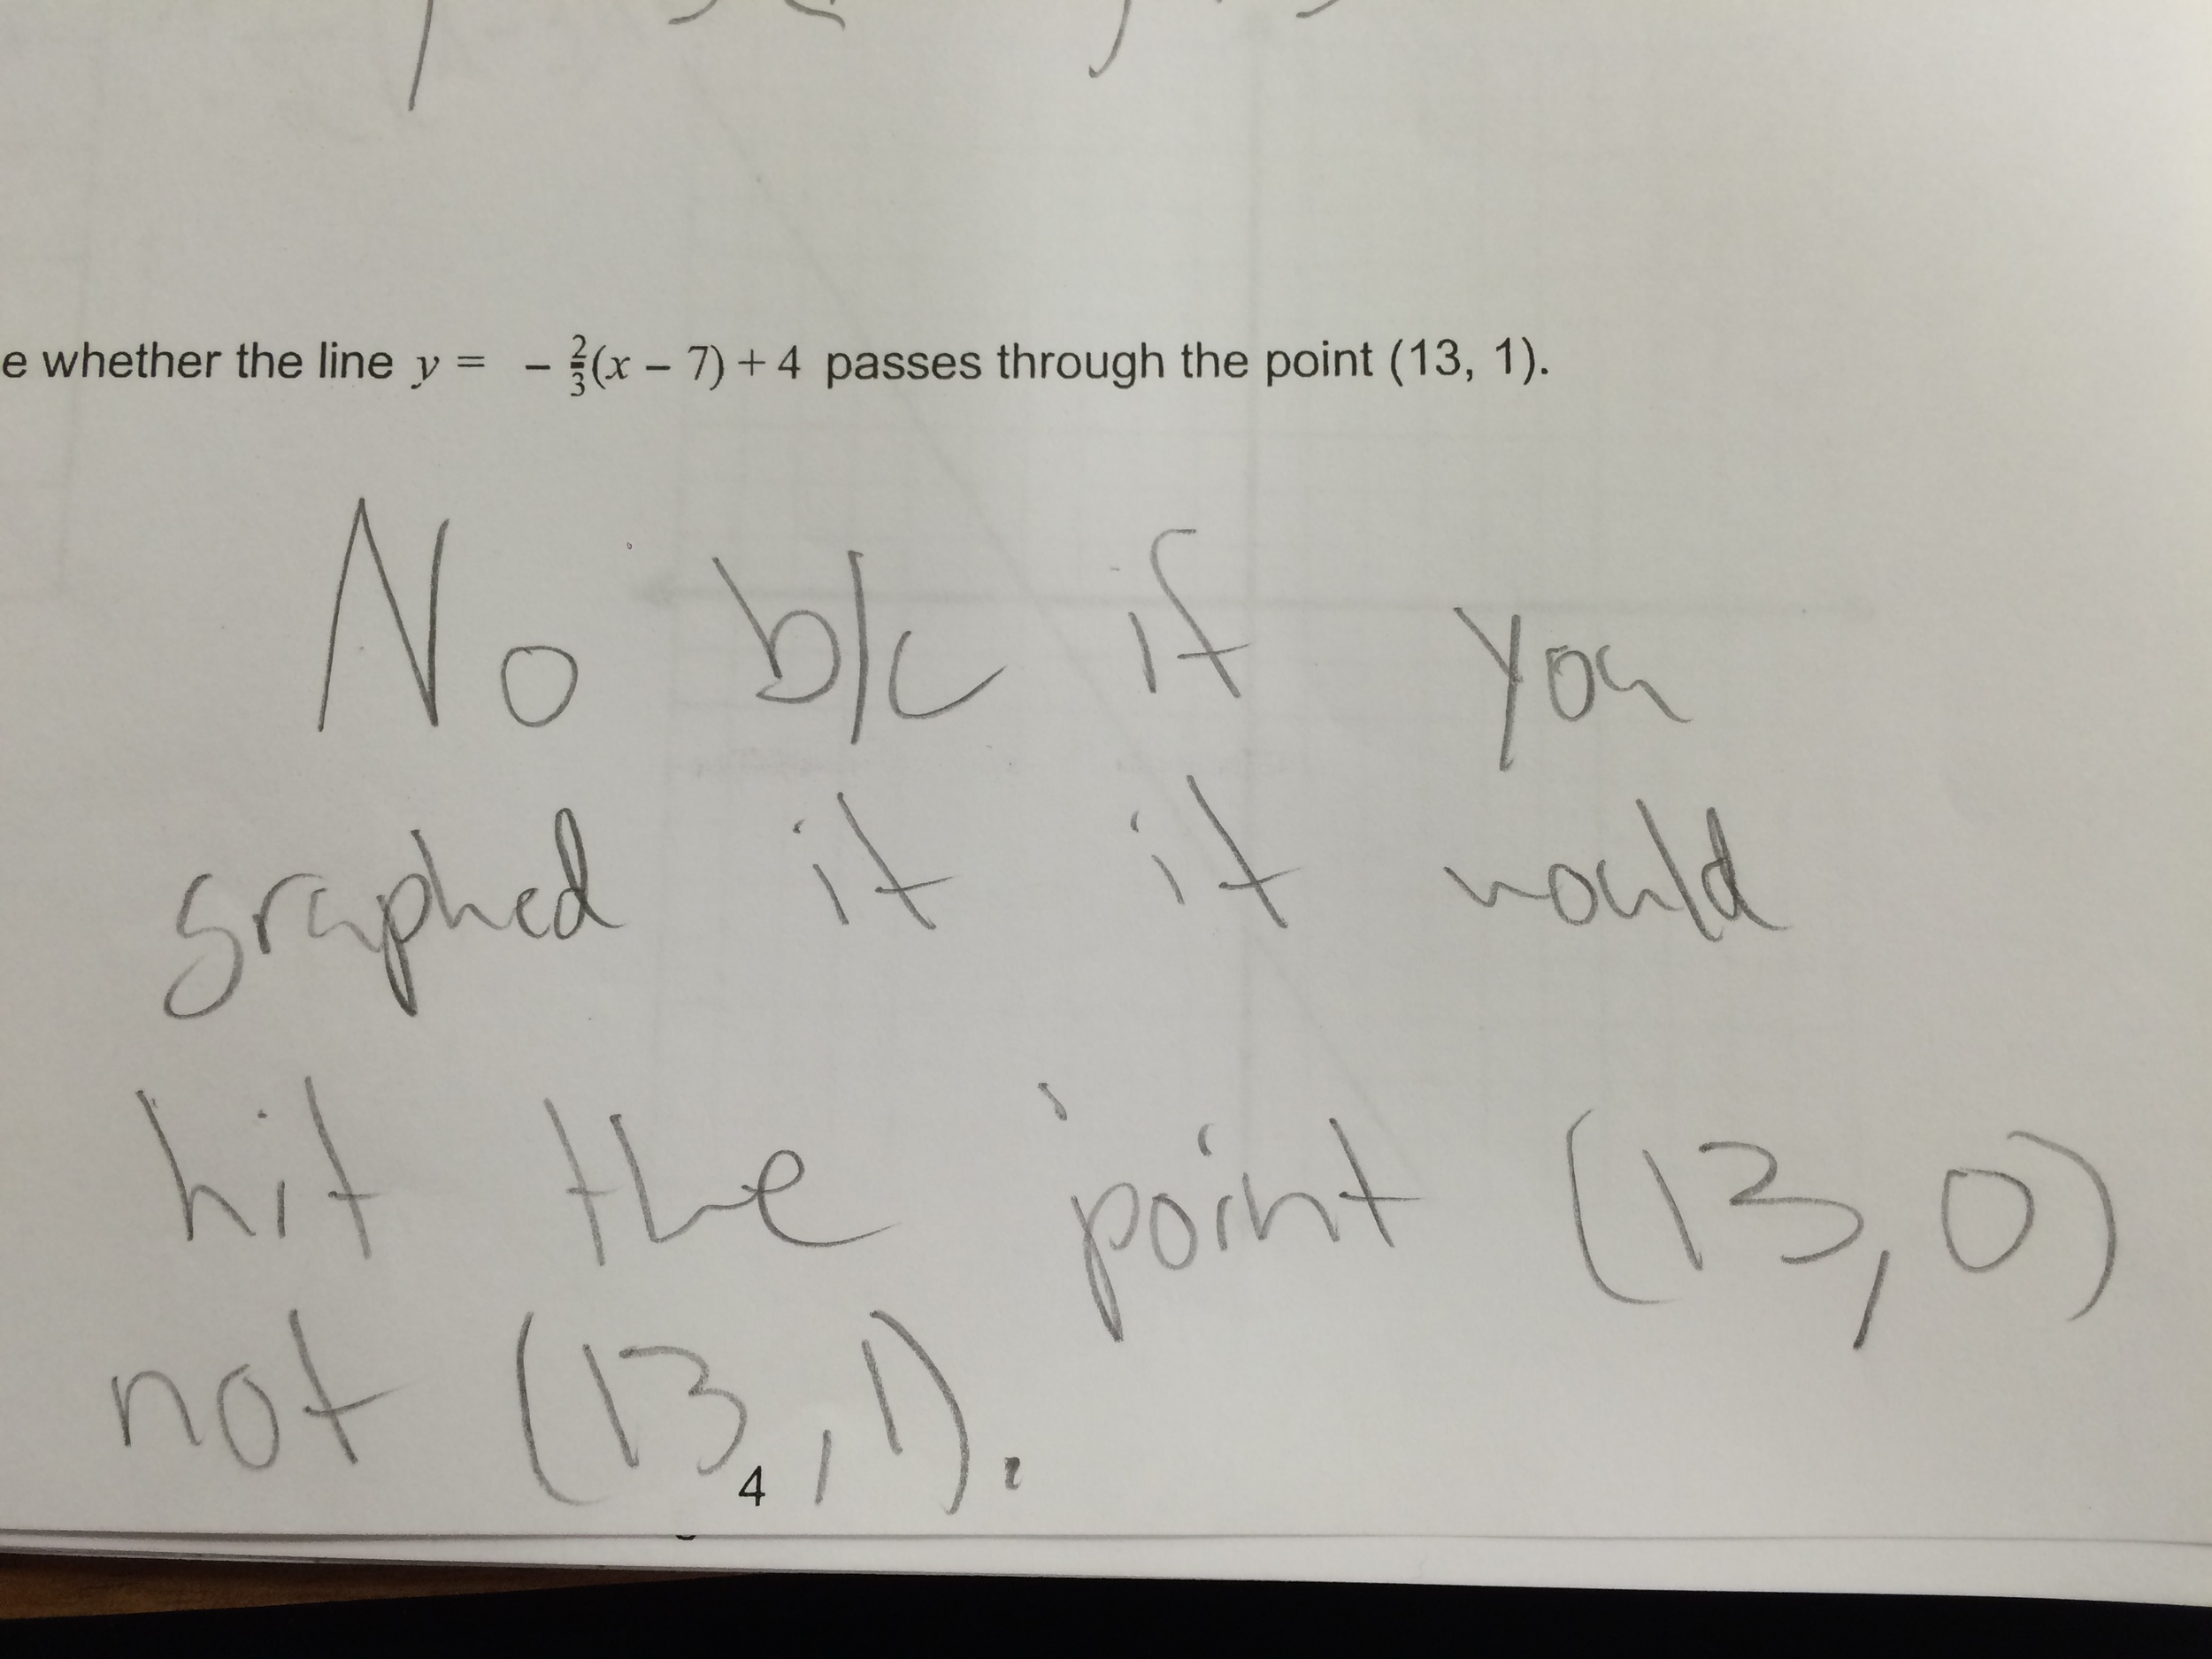 e whether the line y = − 2/3(x − 7) + 4 passes through the point (13, 1).
No b/c if you
graphed it it would
hit the point (13,0)
not (13,1).
4